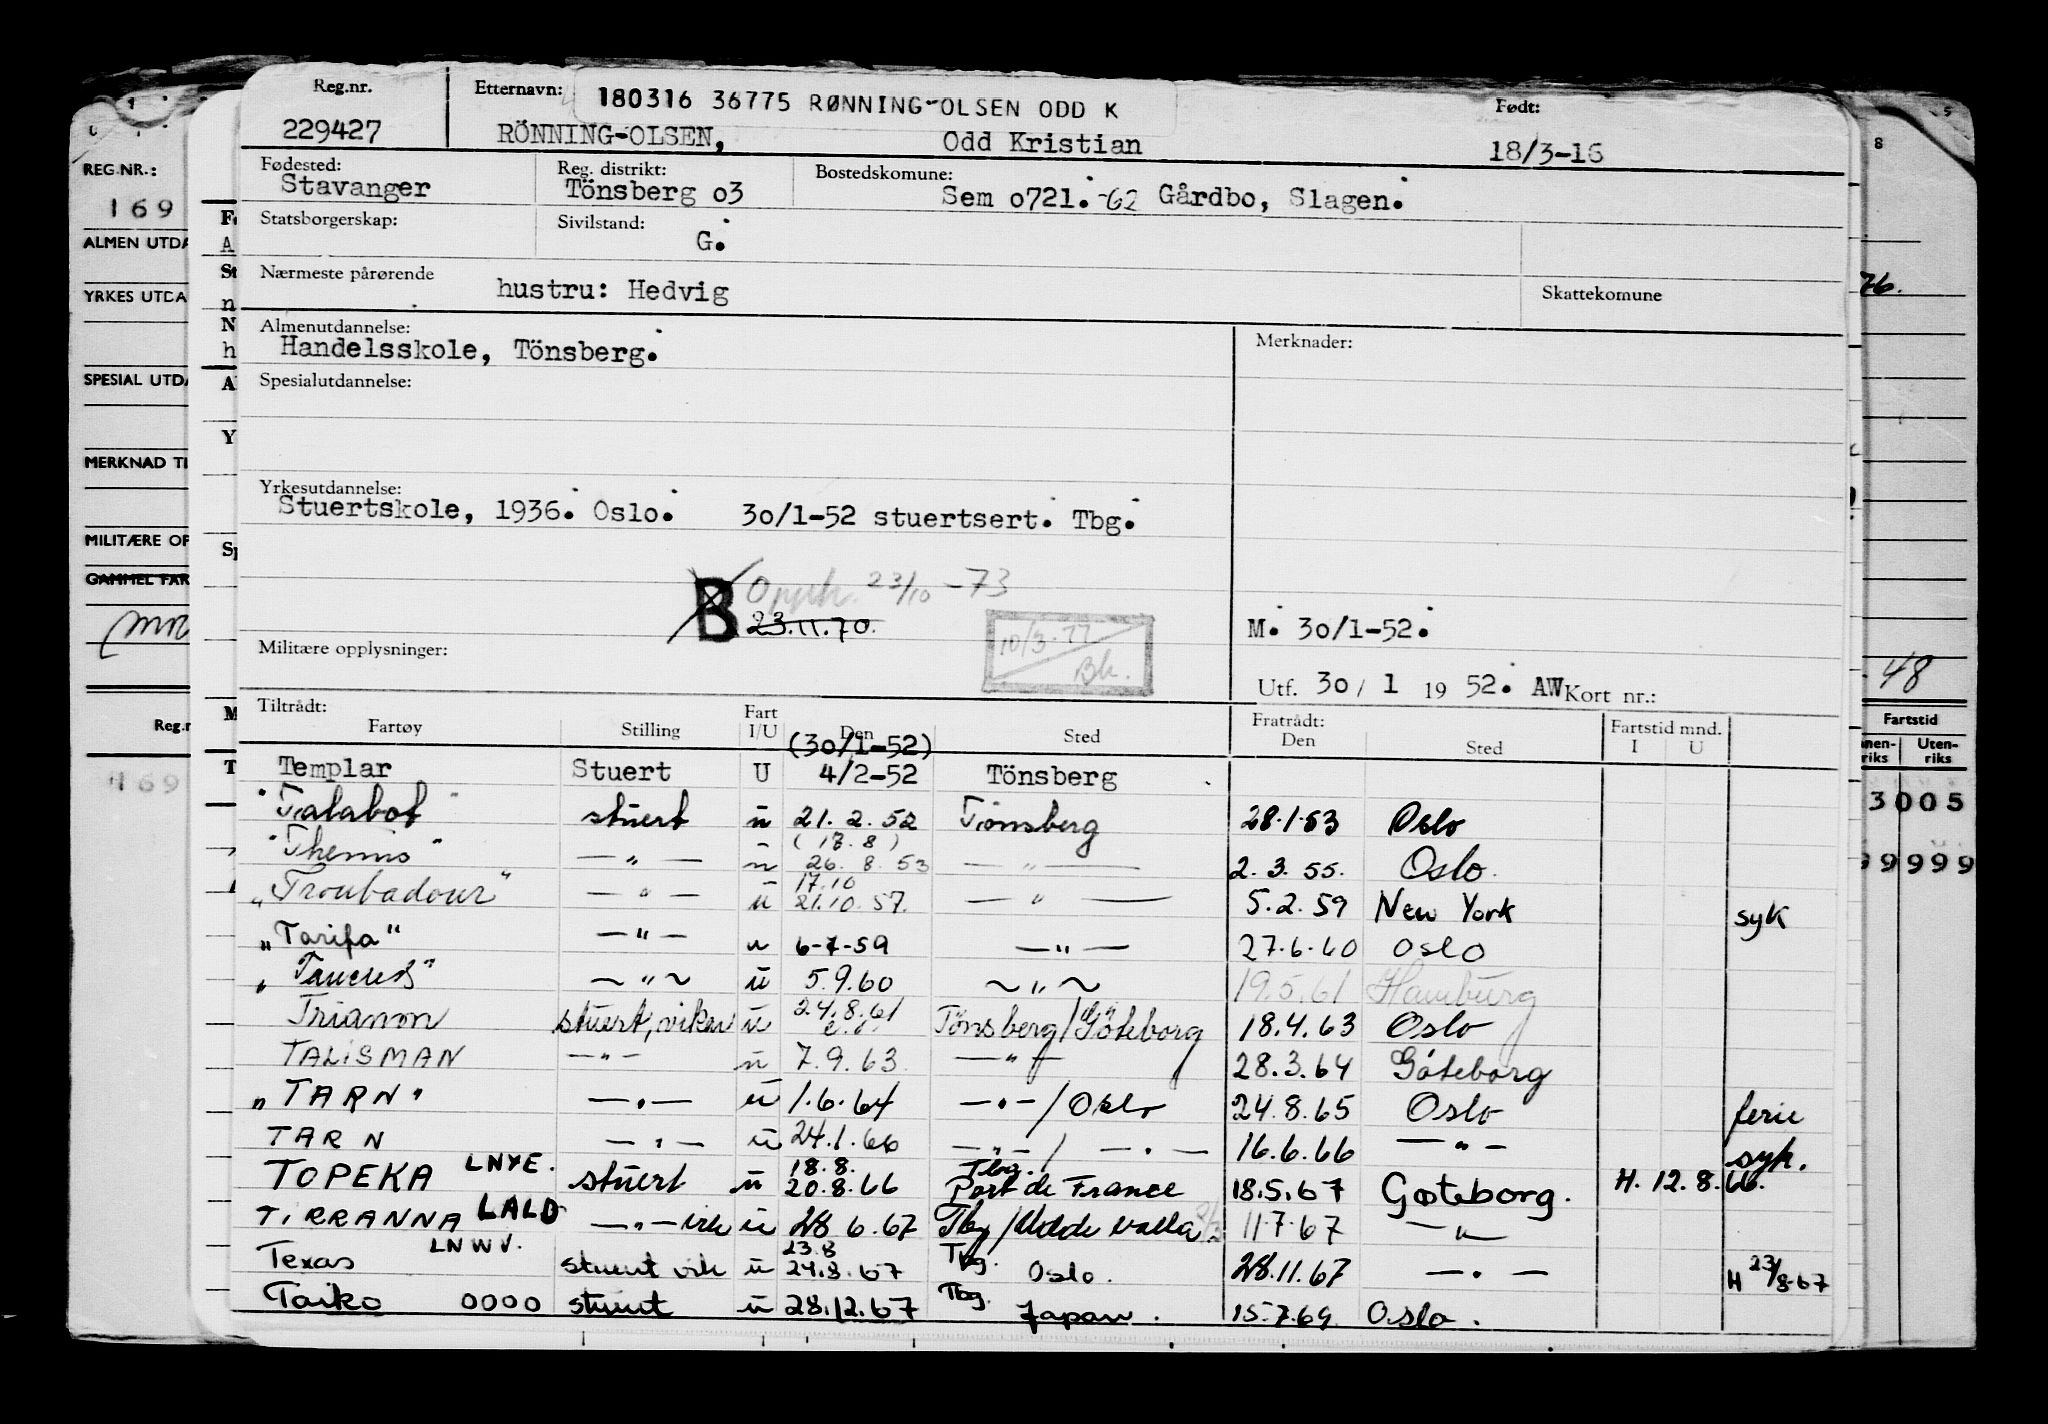 Reg.nr. Etternavn: 180316 36775 RØNNING-OLSEN ODD K Født:
229427 RÖNNING-OLSEN, Odd Kristian 18/3-16
Fødested: Reg. distrikt: Bostedskomune:
Stavanger Tönsberg o3 Sem o721. -62 Gårdbo, Slagen.
Statsborgerskap: Sivilstand: G.
Nærmeste pårørende hustru: Hedvig Skattekomune
Almenutdannelse: Merknader:
Handelsskole, Tönsberg.
Spesialutdannelse:
Yrkesutdannelse:
Stuertskole, 1936. Oslo. 30/1-52 stuertsert. Tbg.
B Opph. 23/10-73
23.11.70.
10/3-77
Bh.
M. 30/1-52.
Militære opplysninger:
Utf. 30/ 1 19 52. AW Kort nr.:
Tiltrådt: Fratrådt: Fartstid mnd.
Fartøy Stilling Fart I/U Den Sted Den Sted I U
(30/1-52)
Templar Stuert U 4/2-52 Tönsberg
"Talabot" stuert u 21. 2. 52 Tönsberg 28.1.53 Oslo
(17.8)
"Themis" — " — u 26. 8. 53 — " — 2. 3. 55. Oslo.
17.10
"Troubadour" — " — u 21.10.57. — " — 5.2.59 New York syk
"Tarifa" — " — u 6-7-59 — " — 27.6.60 Oslo
"Tancred" ~ " ~ u 5.9.60 ~ " ~ 19.5.61 Hamburg
Trianon stuert, vikar u 24.8.61 Tönsberg/Göteborg 18.4.63 Oslo
TALISMAN — " — u 7.9.63 — " — 28.3.64 Göteborg
"TARN" — " — u 1.6.64 — " — / Oslo 24.8.65 Oslo ferie
TARN — " — u 24.1.66 — " — / — " — 16.6.66 — " — syk.
18.8. Tbg.
TOPEKA LNYE. stuert u 20.8.66 Port de France 18.5.67 Gøteborg. H. 12.8.66.
TIRRANNA LALD — " — vik u 28 6. 67 Tbg/Uddevalla 11.7.67 — " —
LNWV. 23.8 Tbg.
Texas stuert vik u 24.8.67 Oslo. 28.11.67 — " — H 23/8-67
Taiko 0000 stuert u 28.12.67 Tbg. Japan. 15.7.69 Oslo.
REG.NR.:
169
ALMEN UTDA
YRKES UTDA
SPESIAL UTDA
MERKNAD TI
MILITÆRE OP
GAMMEL FAR
Reg.n
169
76.
48
Fartstid
nen-riks Uten-riks
3005
9999